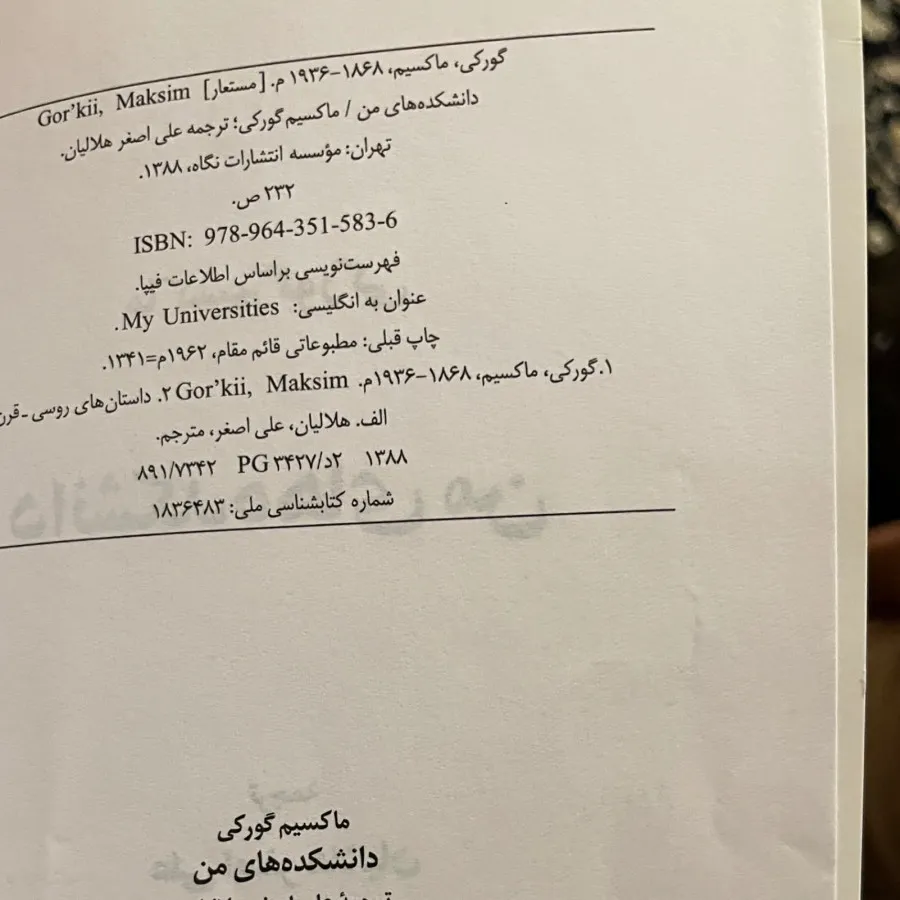 گورکی، ماکسیم، ۱۸۶۸-۱۹۳۶ م. [مستعار] Gor'kii, Maksim
دانشکده‌های من / ماکسیم گورکی؛ ترجمه علی اصغر هلالیان.
تهران: مؤسسه انتشارات نگاه، ۱۳۸۸.
۲۳۲ ص.
ISBN: 978-964-351-583-6
فهرست‌نویسی براساس اطلاعات فیپا.
عنوان به انگلیسی: My Universities.
چاپ قبلی: مطبوعاتی قائم مقام، ۱۹۶۲م=۱۳۴۱.
۱.گورکی، ماکسیم، ۱۸۶۸-۱۹۳۶م. Gor'kii, Maksim ۲. داستان‌های روسی - قرن
الف. هلالیان، علی اصغر، مترجم.
۱۳۸۸ ۲د/۳۴۲۷ PG ۸۹۱/۷۳۴۲
شماره کتابشناسی ملی: ۱۸۳۶۴۸۳
ماکسیم گورکی
دانشکده‌های من